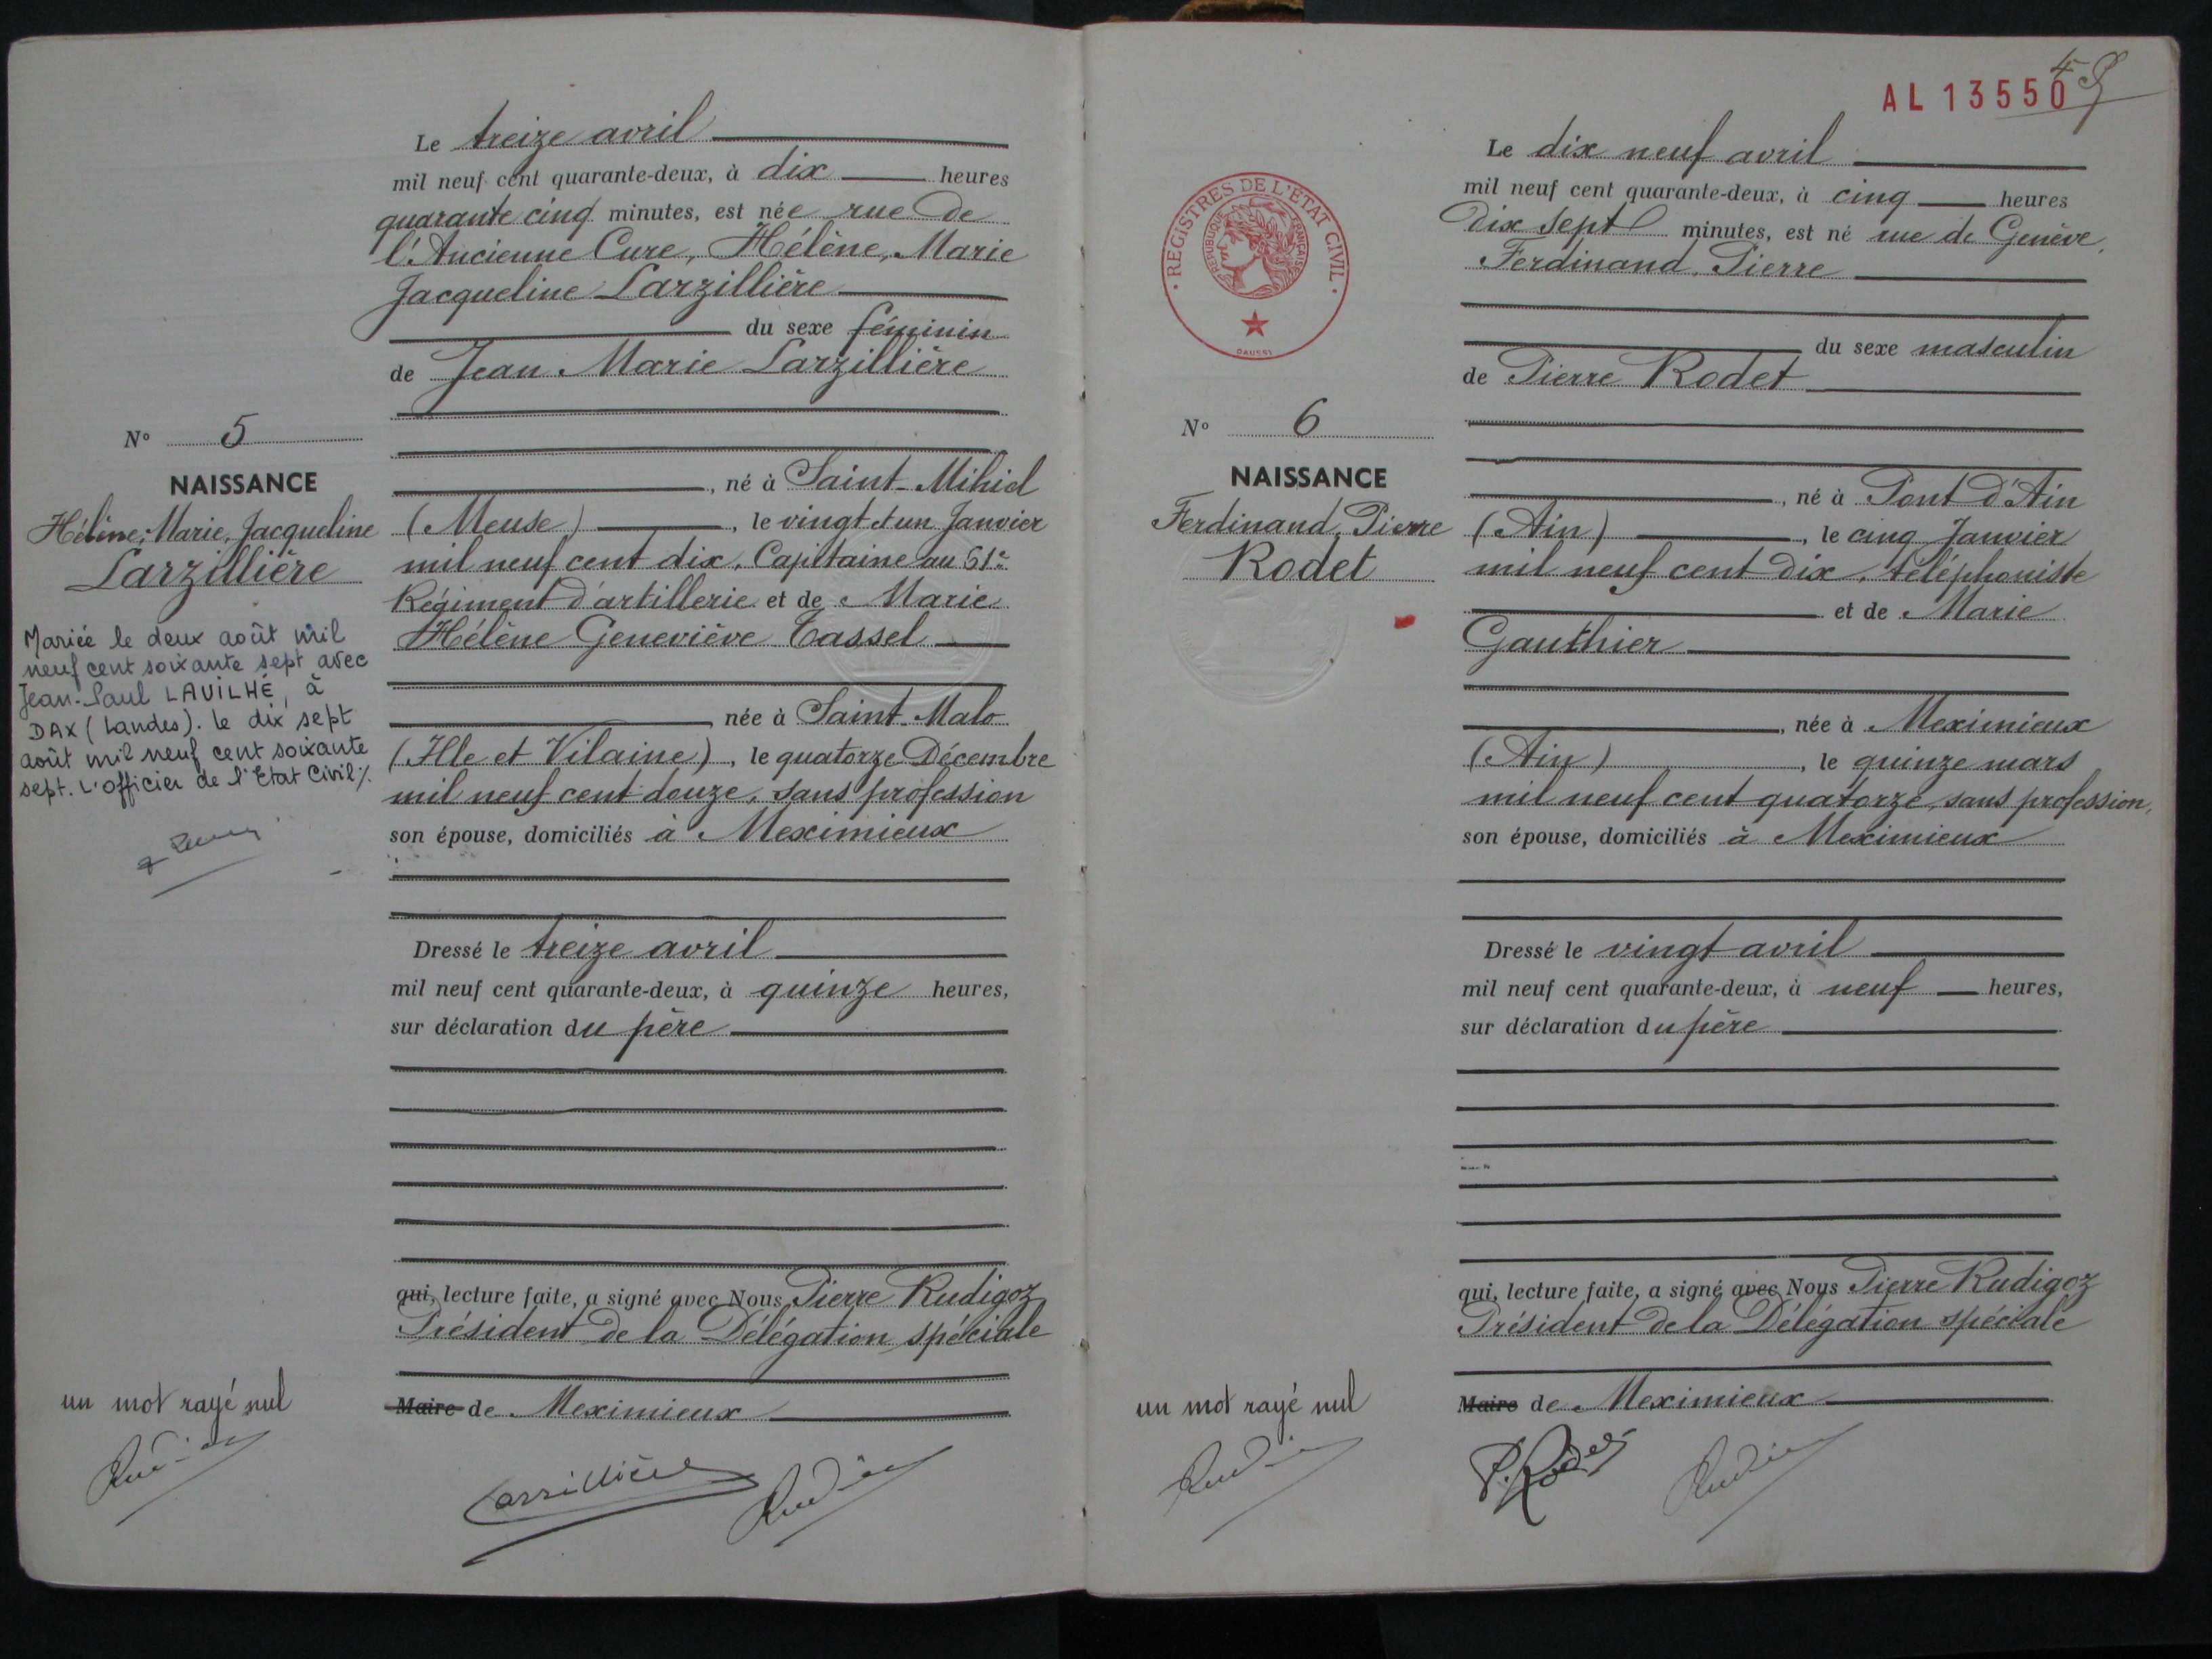 Le treize avril
mil neuf cent quarante-deux, à dix heures
quarante cinq minutes, est née rue de
l'Ancienne Cure, Hélène, Marie
Jacqueline Larzillière
du sexe féminin
de Jean Marie Larzillière
N° 5
NAISSANCE
Hélène, Marie, Jacqueline
Larzillière
Mariée le deux août mil
neuf cent soixante sept avec
Jean-Paul LAVILHÉ, à
DAX (Landes). le dix sept
août mil neuf cent soixante
sept. L'officier de l'Etat Civil ./.
, né à Saint-Mihiel
(Meuse) , le vingt et un Janvier
mil neuf cent dix, Capitaine au 61e
Régiment d'artillerie et de Marie
Hélène Geneviève Tassel
, née à Saint-Malo
(Ille et Vilaine) , le quatorze Décembre
mil neuf cent douze, sans profession
son épouse, domiciliés à Meximieux
Dressé le treize avril
mil neuf cent quarante-deux, à quinze heures,
sur déclaration du père
qui, lecture faite, a signé avec Nous Pierre Rudigoz
Président de la Délégation spéciale
Maire de Meximieux
un mot rayé nul
Larzillière
AL 13550
REGISTRES DE L'ÉTAT CIVIL
REPUBLIQUE FRANÇAISE
Le dix neuf avril
mil neuf cent quarante-deux, à cinq heures
Dix sept minutes, est né rue de Genève,
Ferdinand, Pierre
du sexe masculin
de Pierre Rodet
N° 6
NAISSANCE
Ferdinand, Pierre
Rodet
, né à Pont d'Ain
(Ain) , le cinq Janvier
mil neuf cent Dix, téléphoniste
et de Marie
Gauthier
, née à Meximieux
(Ain) , le quinze mars
mil neuf cent quatorze, sans profession,
son épouse, domiciliés à Meximieux
Dressé le vingt avril
mil neuf cent quarante-deux, à neuf heures,
sur déclaration du père
qui, lecture faite, a signé avec Nous Pierre Rudigoz
Président de la Délégation spéciale
Maire de Meximieux
un mot rayé nul
P. Rodet